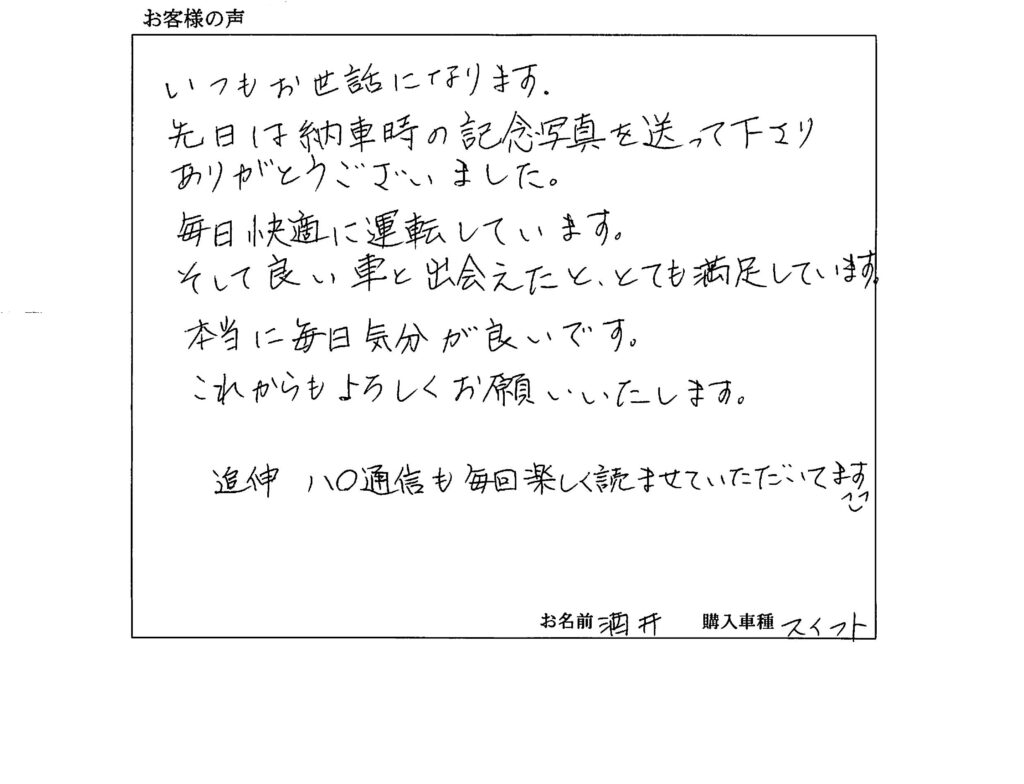 お客様の声
いつもお世話になります.
先日は納車時の記念写真を送って下さり
ありがとうございました。
毎日快適に運転しています。
そして良い車と出会えたと、とても満足しています。
本当に毎日気分が良いです。
これからもよろしくお願いいたします。
追伸 ハ〇通信も毎回楽しく読ませていただいてます
お名前 酒井 購入車種 スイフト